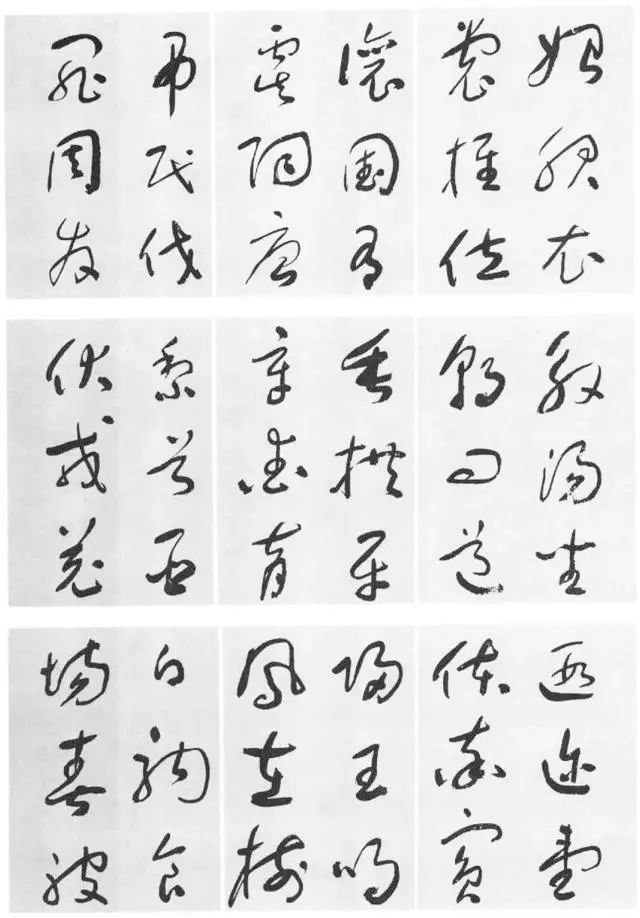 始服衣
裳推位
讓國有
虞陶唐
弔民伐
罪周發
殷湯坐
朝問道
垂拱平
章愛育
黎首臣
伏戎羌
遐邇壹
體率賓
歸王鳴
鳳在樹
白駒食
場被